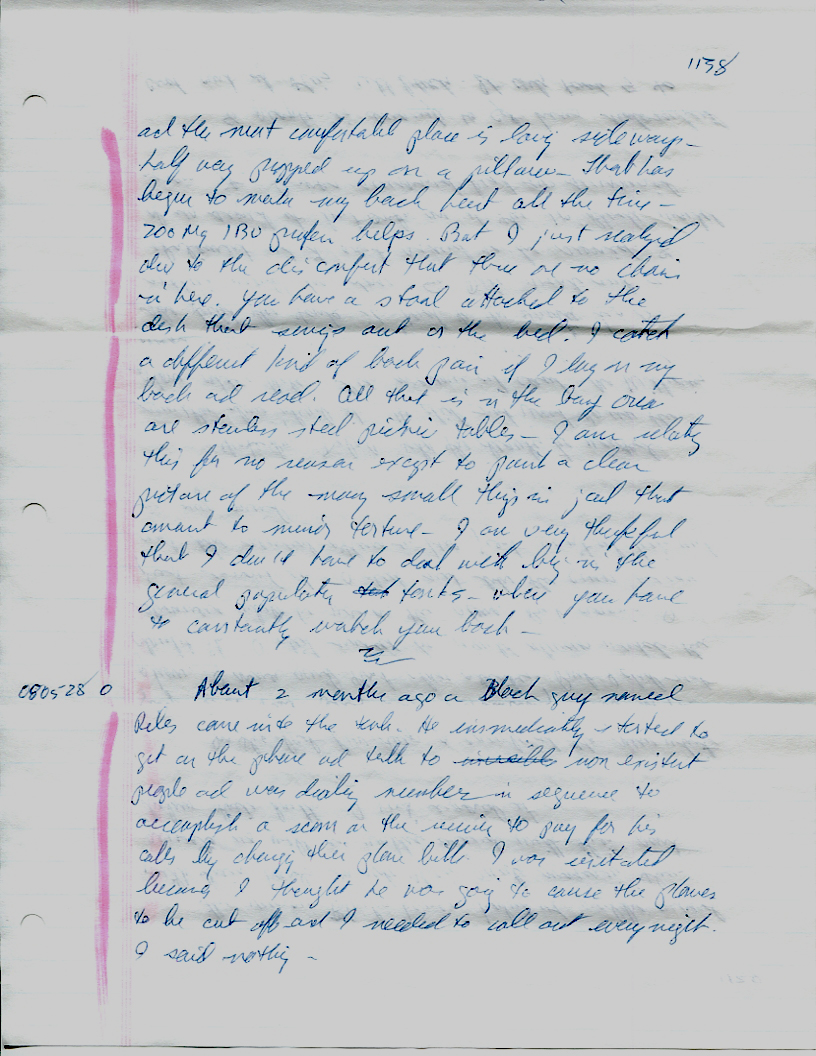 1158
ad the most comfortable place is laying sideways -
half way propped up on a pillow - That has
begun to make my back hurt all the time -
200 Mg IBU profen helps. But I just realized
due to the discomfort that there are no chairs
in here. You have a stool attached to the
desk that swings out or the bed. I catch
a different kind of back pain if I lay on my
back ad read. All that is in the day area
are stainless steel picnic tables - I am relating
this for no reason except to paint a clear
picture of the many small things in jail that
amount to minor torture - I am very thankful
that I don't have to deal with being in the
general population tanks - where you have
to constantly watch your back -
080528 0 About 2 months ago a Black guy named
came into the tank. He immediately started to
get on the phone ad talk to invisible non existent
people ad was dialing numbers in sequence to
accomplish a scam on the receiver to pay for his
calls by charging their phone bill. I was irritated
because I thought he was going to cause the phones
to be cut off ad I needed to call out every night.
I said nothing -